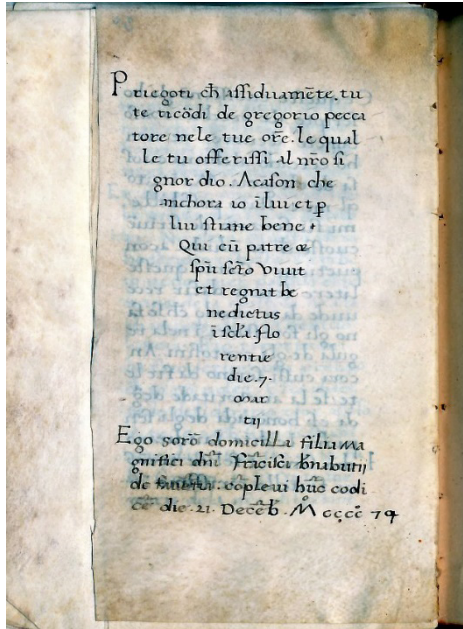 Priegoti ch̄ assiduamēte. tu
te ricōdi de gregorio pecca
tore nele tue orē. le qual
le tu offerissi al nr̄o si
gnor dio. Acason che
anchora io ī lui et ꝑ
lui stiane bene
Qui cū patre &
spū sct̄o vivit
et regnat be
nedictus
ī scl̄a. flo
rentie
die. 7.
mar
tij
Ego sorō domicilla filia ma
gnifici dn̄i frācisci
de cōplevi hūc codi
cē die. 21. Decēb. Mcccc 74